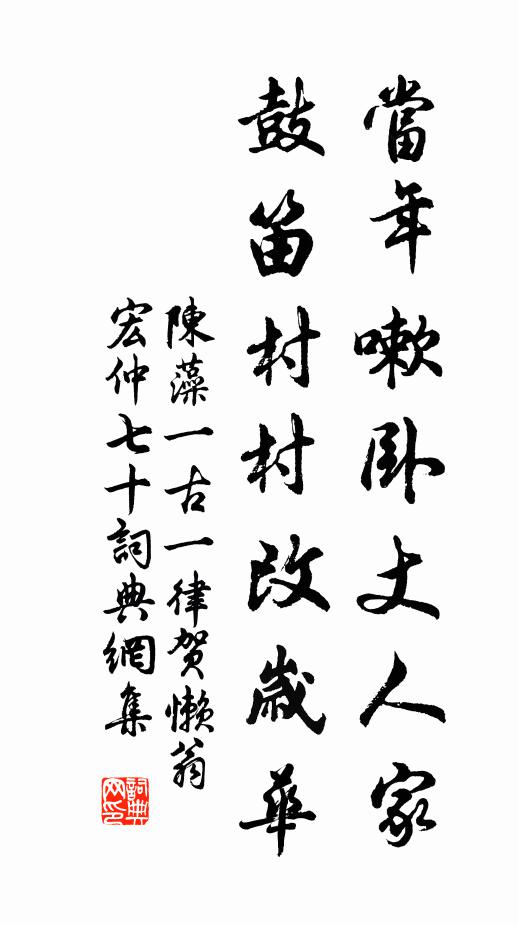 當年嗽卧丈人家
鼓笛村村改歲華
陳藻一古一律贺懒翁
宏仲七十詞典網集
詞典
网印